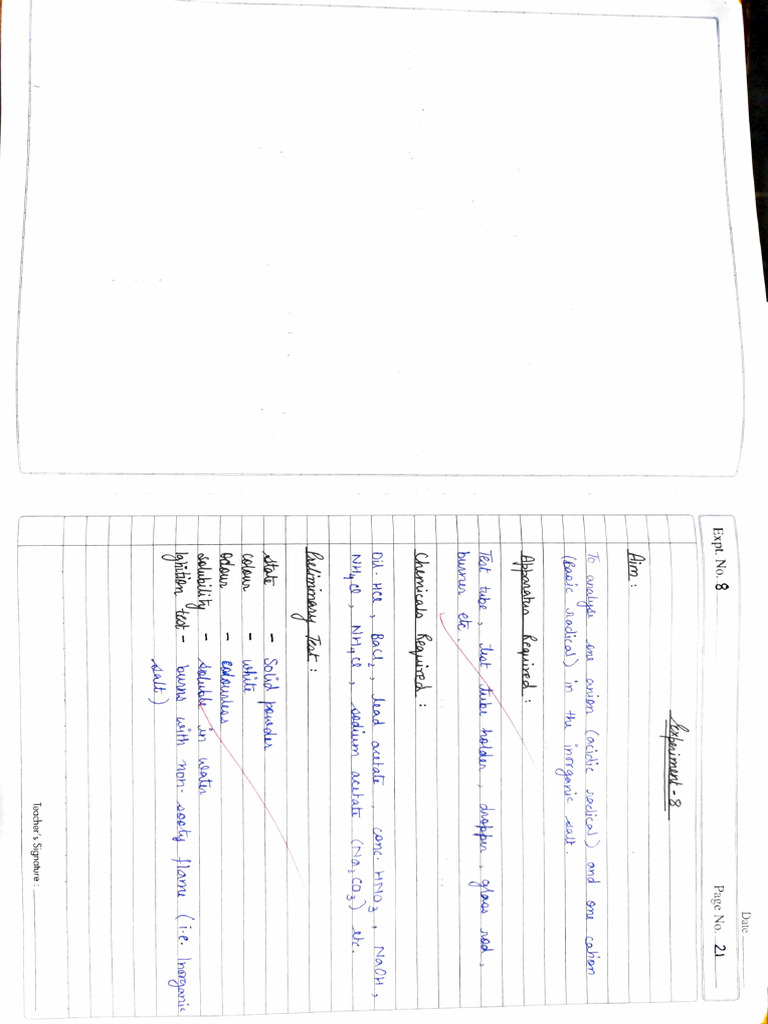 Date
Expt. No. 8
Page No. 21
Experiment - 8
Aim :
To analyse one anion (acidic radical) and one cation
(Basic radical) in the inorganic salt.
Apparatus Required :
Test tube, test tube holder, dropper, glass rod,
burner etc.
Chemicals Required :
Dil. HCl, BaCl2, lead acetate, conc. HNO3, NaOH,
NH4Cl, NH4Cl, sodium acetate (Na2CO3) etc.
Preliminary Test :
State - Solid powder
colour - white
odour - odourless
solubility - soluble in water
Ignition test - burns with non-sooty flame (i.e. Inorganic
salt.)
Teacher's Signature :